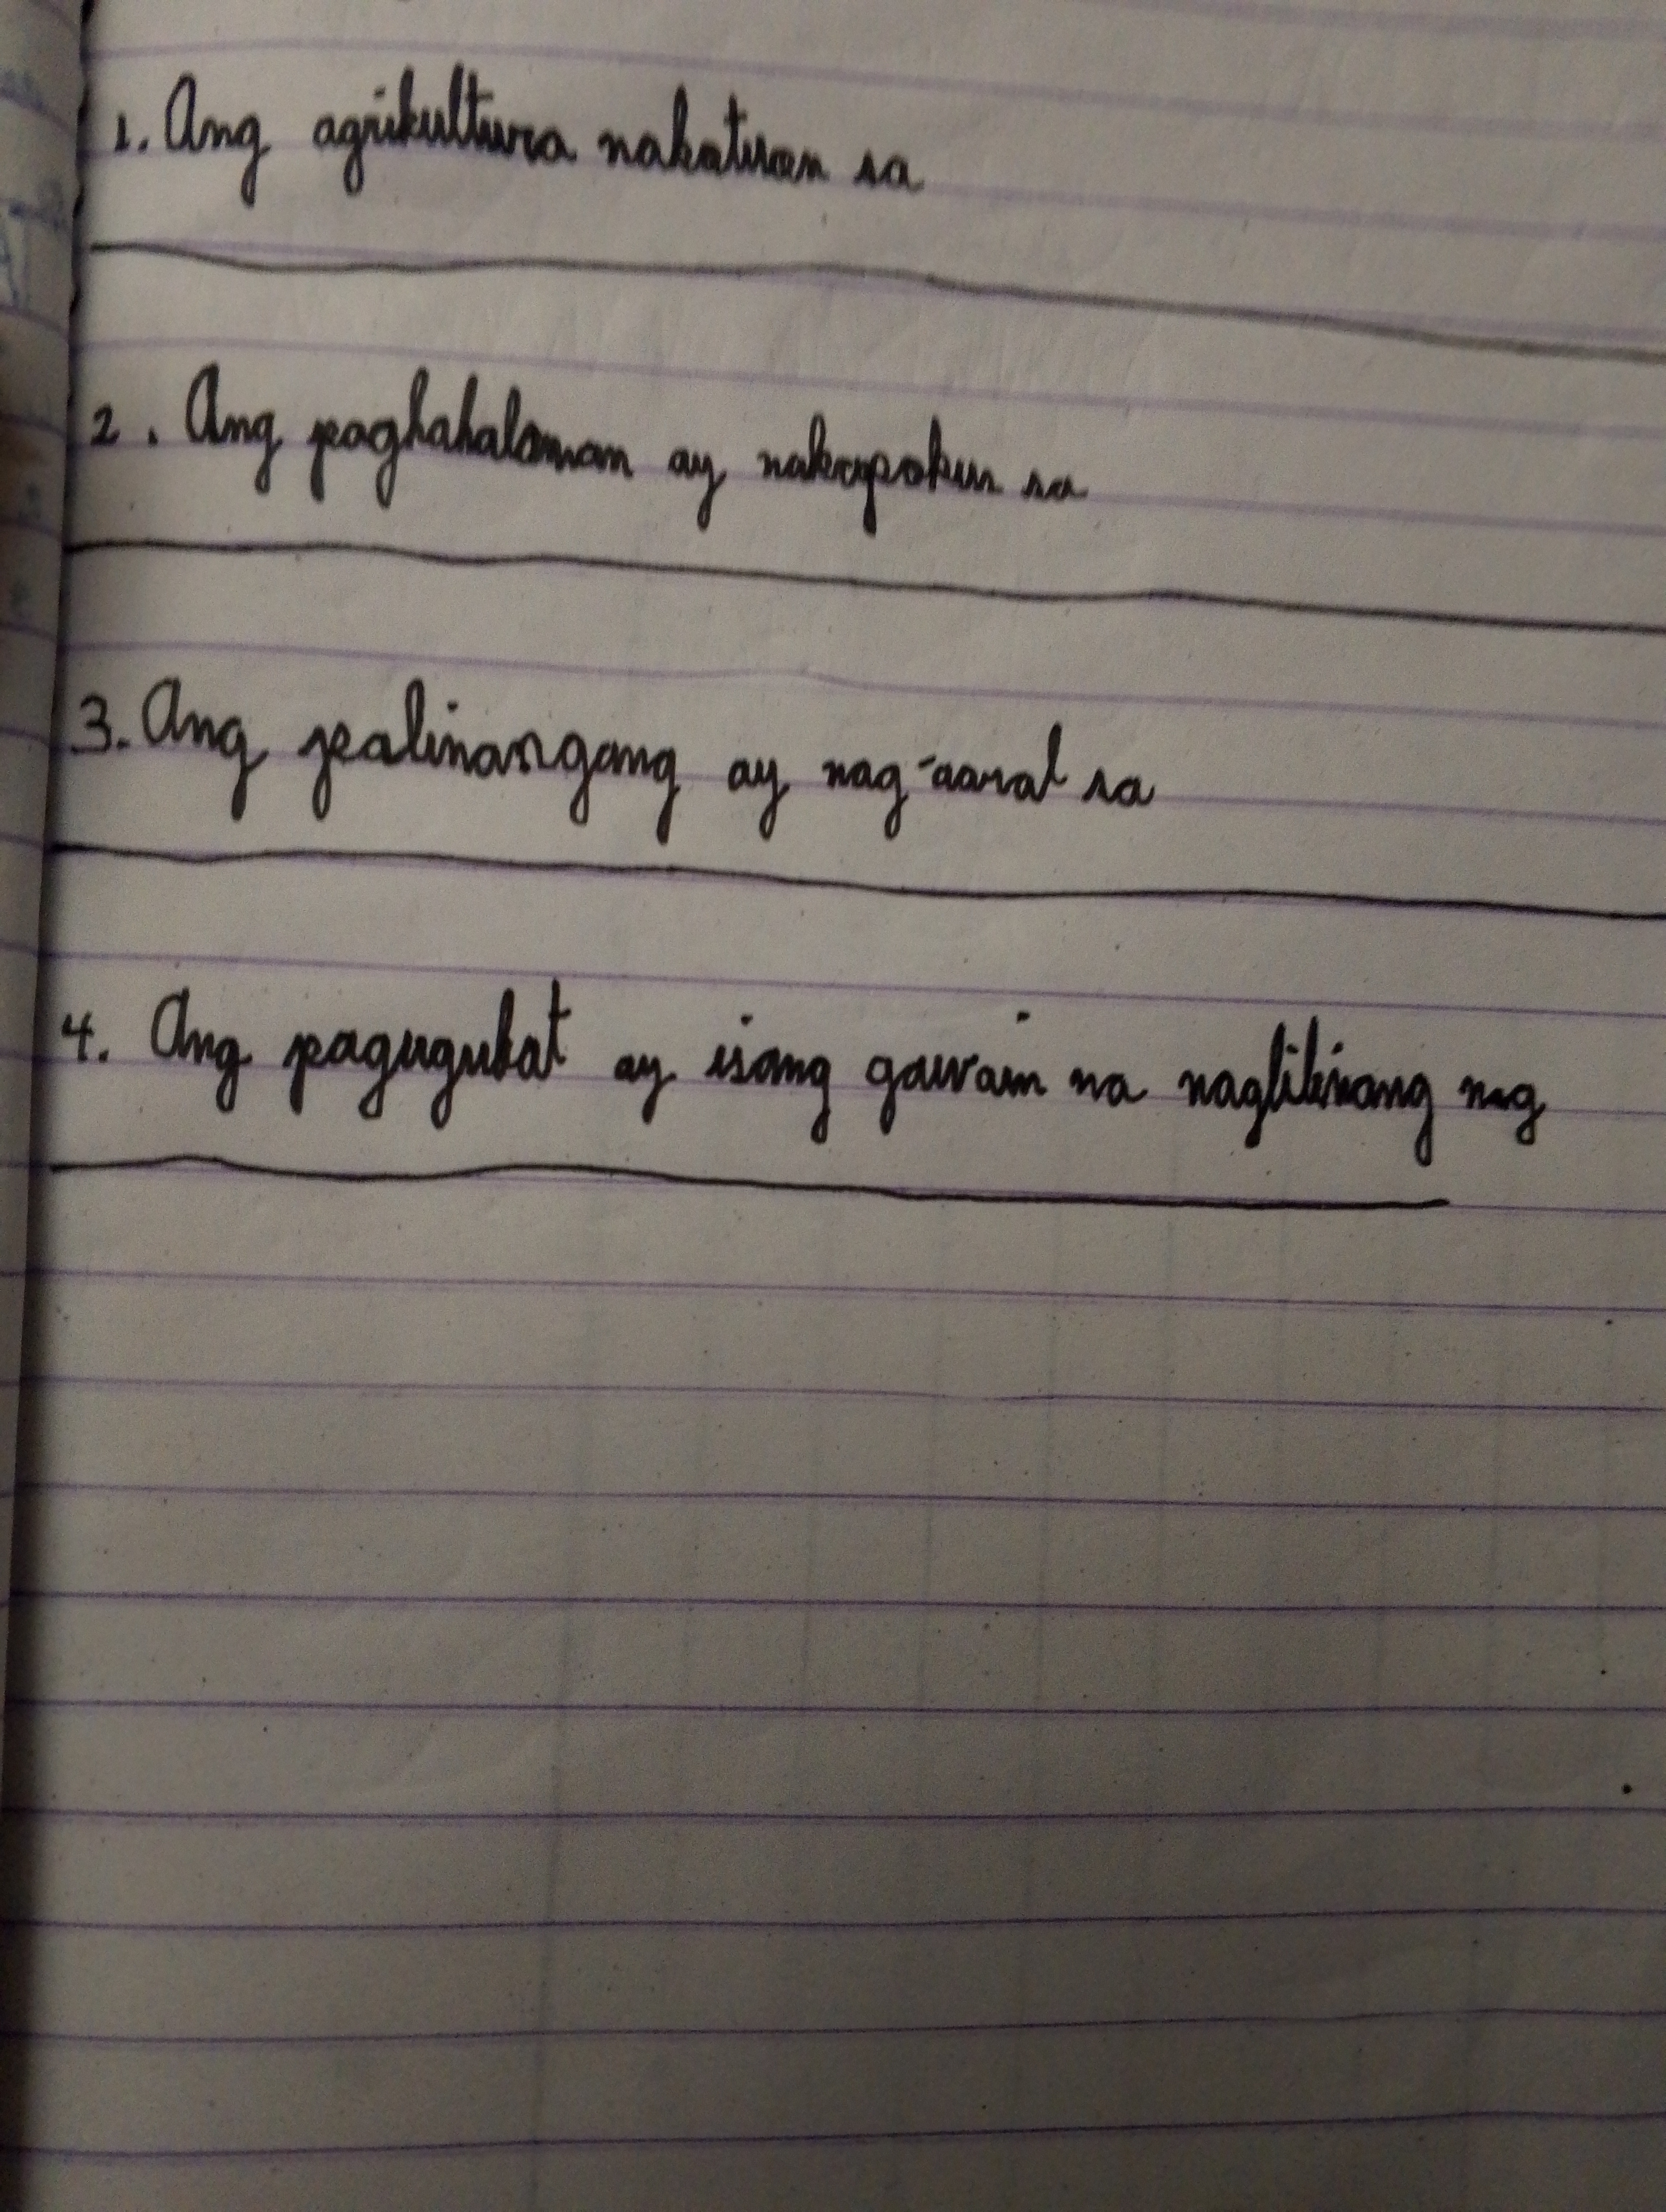 1. Ang agrikultura nakatuon sa
2. Ang paghahalaman ay nakapokus sa
3. Ang palinangang ay nag-aaral sa
4. Ang pagugubat ay isang gawain na naglilinang ng